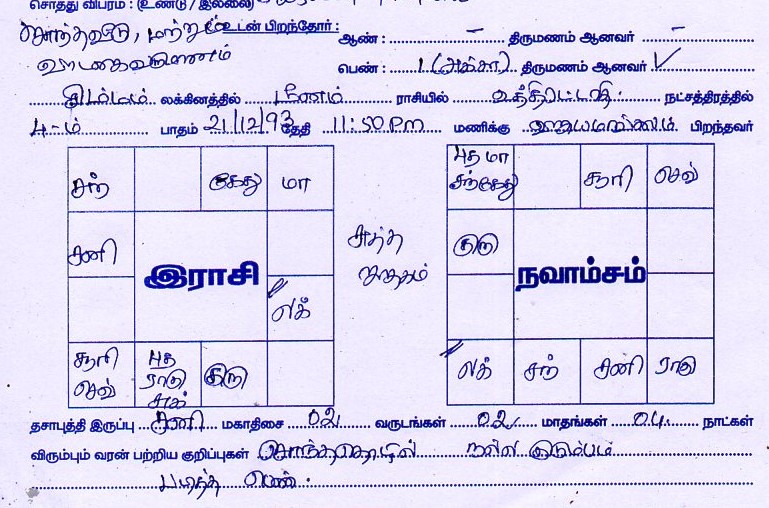 சொத்து விபரம் : (உண்டு / இல்லை)
சொந்தவீடு, மற்றும் உடன் பிறந்தோர் : ஆண் : – திருமணம் ஆனவர் –
வாடகைவருமானம் பெண் : 1 (அக்கா) திருமணம் ஆனவர் ✓
சிம்மம் லக்கினத்தில் மீனம் ராசியில் உத்திரட்டாதி நட்சத்திரத்தில்
4-ம் பாதம் 21/12/93 தேதி 11:50 PM மணிக்கு பிறந்தவர்
சந் கேது மா
சனி
இராசி
லக்
சூரி செவ்
புத ராகு சுக்
குரு
சுத்த ஜாதகம்
புத மா சுக்கேது
சூரி செவ்
குரு
நவாம்சம்
லக் சந் சனி ராகு
தசாபுத்தி இருப்பு சனி மகாதிசை 02 வருடங்கள் 02 மாதங்கள் 04 நாட்கள்
விரும்பும் வரன் பற்றிய குறிப்புகள் சொந்ததொழில் நல்ல குடும்பம்
படித்த பெண்.